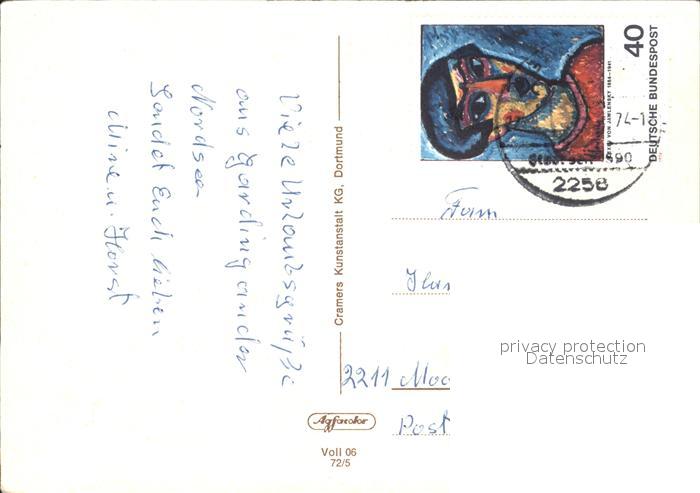 Viele Urlaubsgrüße
aus Garding an der
Nordsee
Sendet Euch lieben
u. Horst
Cramers Kunstanstalt KG, Dortmund
40
DEUTSCHE BUNDESPOST
ALEXEJ VON JAWLENSKY 1864-1941
74-1
2256
Fam
2211 Moo
Post
privacy protection
Datenschutz
Agfacolor
Voll 06
72/5